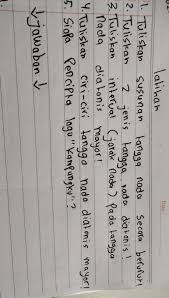 Latihan
1. Tuliskan susunan tangga nada secara berurut
2. Tuliskan 2 jenis tangga nada diatonis!
3. Tuliskan interval (jarak nada) pada tangga
nada diatonis mayor!
4. Tuliskan ciri-ciri tangga nada diatonis mayor!
5. Siapa Pencipta lagu "Kampungku"?
↓ Jawaban ↓